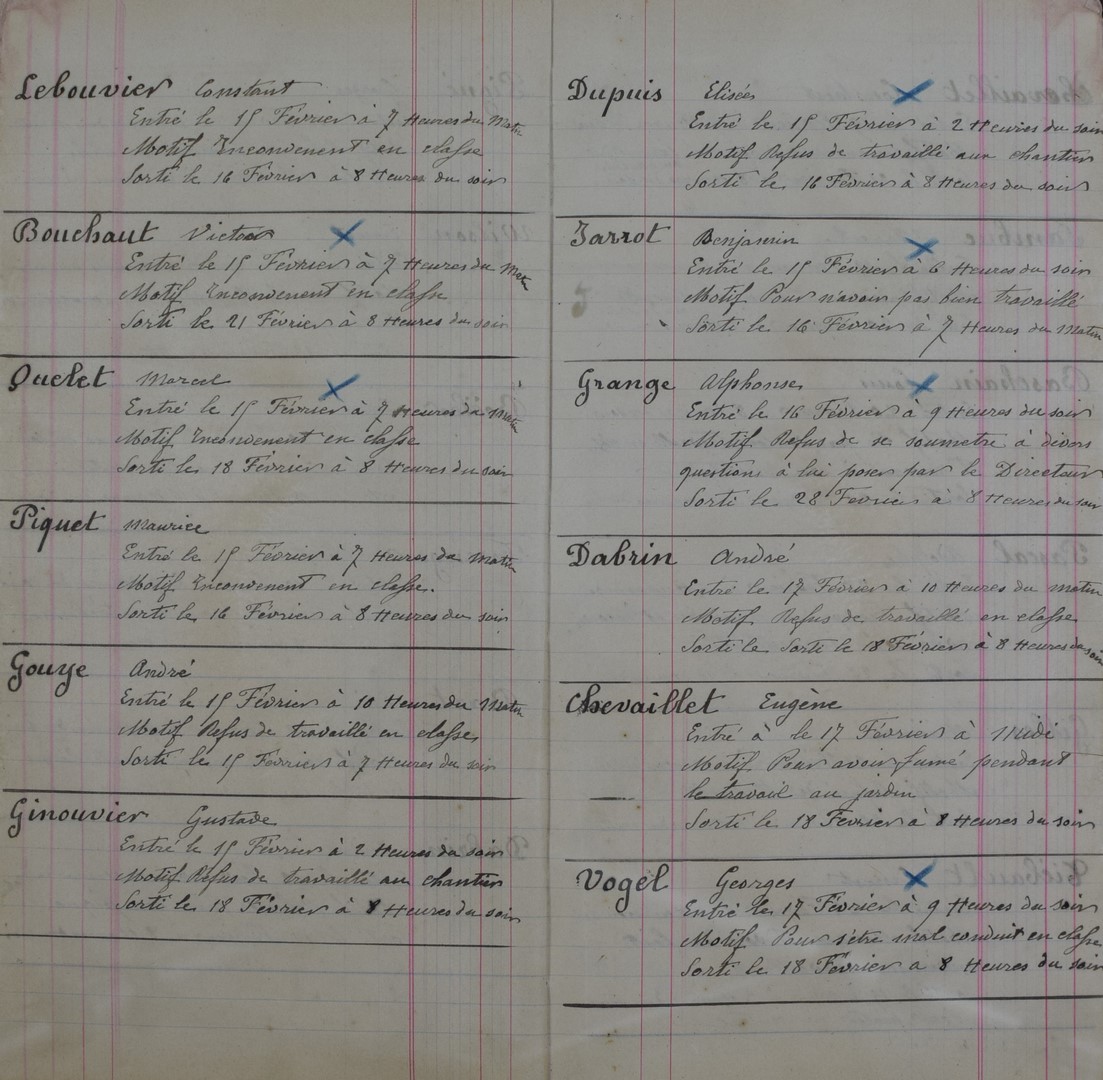 Lebouvier Constant
Entré le 15 Février à 7 Heures du Matin
Motif Inconvenent en classe
Sorti le 16 Février à 8 Heures du soir
Bouchaut Victor
Entré le 15 Février à 7 Heures du Mat
Motif Inconvenent en classe
Sorti le 21 Février à 8 Heures du soir
Ouelet Marcel
Entré le 15 Février à 7 Heures du Matin
Motif Inconvenent en classe
Sorti le 18 Février à 8 Heures du soir
Piquet Maurice
Entré le 15 Février à 7 Heures du Matin
Motif Inconvenent en classe.
Sorti le 16 Février à 8 Heures du soir
Gouye André
Entré le 15 Février à 10 Heures du Matin
Motif Refus de travaillé en classe
Sorti le 15 Février à 7 Heures du soir
Ginouvier Gustave
Entré le 15 Février à 2 Heures du soir
Motif Refus de travaillé au chantier
Sorti le 18 Février à 8 Heures du soir
Dupuis Elisée
Entré le 15 Février à 2 Heures du soir
Motif Refus de travaillé aux chantier
Sorti le 16 Février à 8 Heures du soir
Jarrot Benjamin
Entré le 15 Février à 6 Heures du soir
Motif Pour n'avoir pas bien travaillé
Sorti le 16 Février à 7 Heures du Matin
Grange Alphonse
Entré le 16 Février à 9 Heures du soir
Motif Refus de se soumetre à divers
questions à lui poser par le Directeur
Sorti le 28 Fevrier à 8 Heures du soir
Dabrin André
Entré le 17 Février à 10 Heures du matin
Motif Refus de travaillé en classe
Sorti le Sorti le 18 Février à 8 Heures du soir
Chevaillet Eugène
Entré à le 17 Février à Midi
Motif Pour avoir fumé pendant
le travail au jardin
Sorti le 18 Février à 8 Heures du soir
Vogel Georges
Entré le 17 Février à 9 Heures du soir
Motif Pour s'étre mal conduit en classe
Sorti le 18 Février a 8 Heures du soir